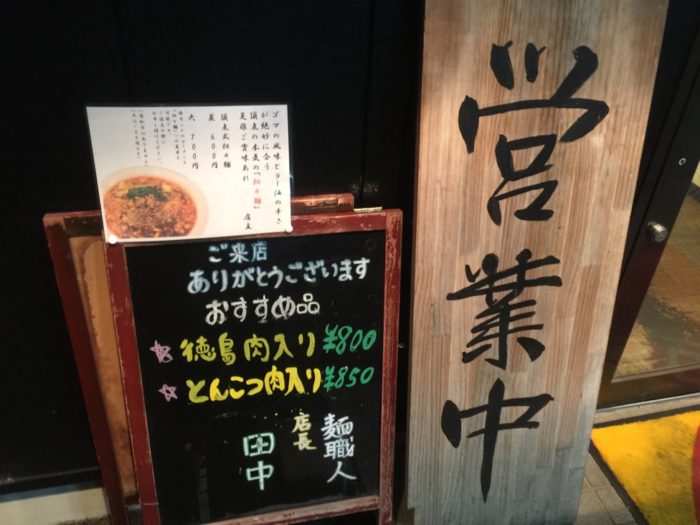 営業中
ゴマの風味とラー油の辛さ
が絶妙に合う
頂点の本気の「担々麺」
是非ご賞味あれ
店主
頂点式担々麺
並 600円
大 700円
ご来店
ありがとうございます
おすすめ品
☆徳島肉入り¥800
☆とんこつ肉入り¥850
麺職人
店長
田中